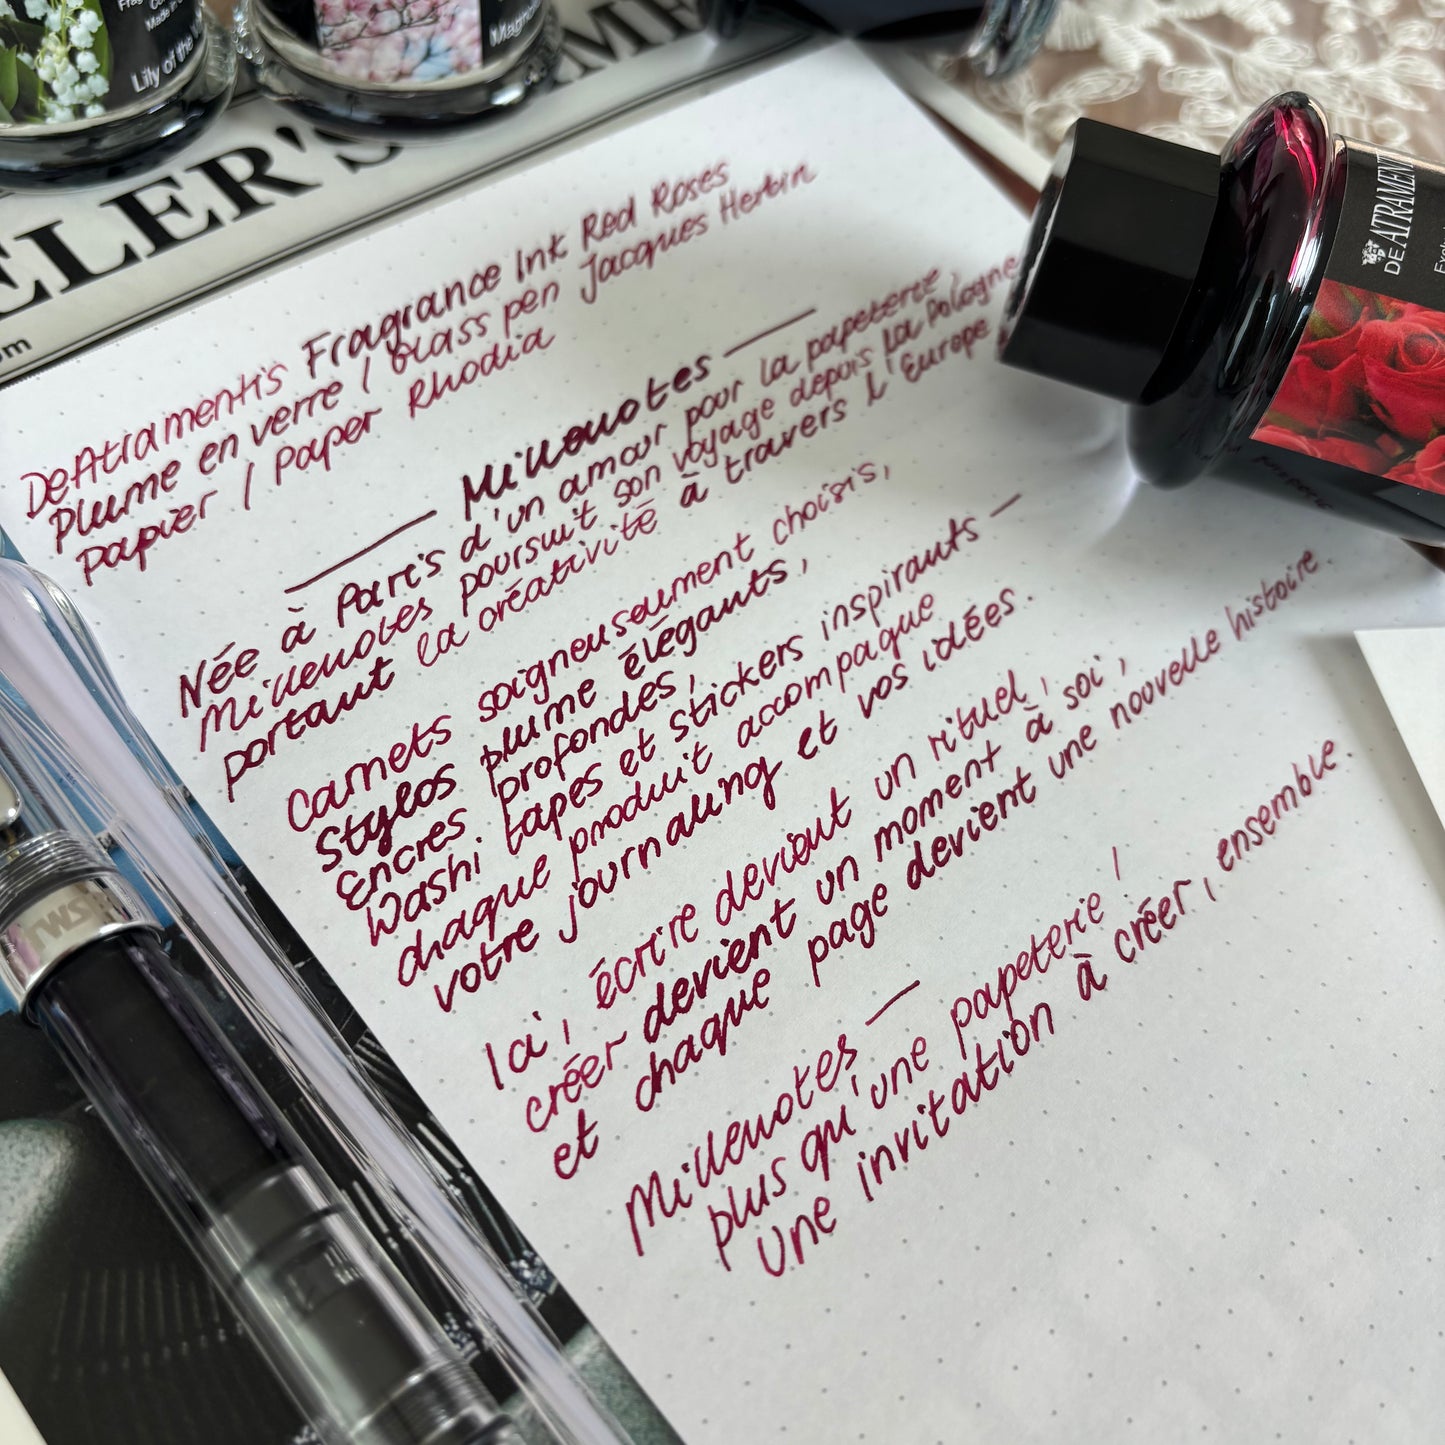 Lily of the
Magno
ELER'S
ME
om
Made in
DeAtramentis Fragrance Ink Red Roses
Plume en verre / Glass pen Jacques Herbin
papier / Paper Rhodia
Millenotes
Née à Paris d'un amour pour la papeterie,
Millenotes poursuit son voyage depuis la Pologne
portant la créativité à travers l'Europe
Carnets soigneusement choisis,
Stylos plume élégants,
Encres profondes,
Washi tapes et stickers inspirants —
chaque produit accompagne
votre journaling et vos idées.
Ici, écrire devient un rituel,
créer devient un moment à soi,
et chaque page devient une nouvelle histoire.
Millenotes —
plus qu'une papeterie /
Une invitation à créer, ensemble.
DE ATRAMENT
TWSBI